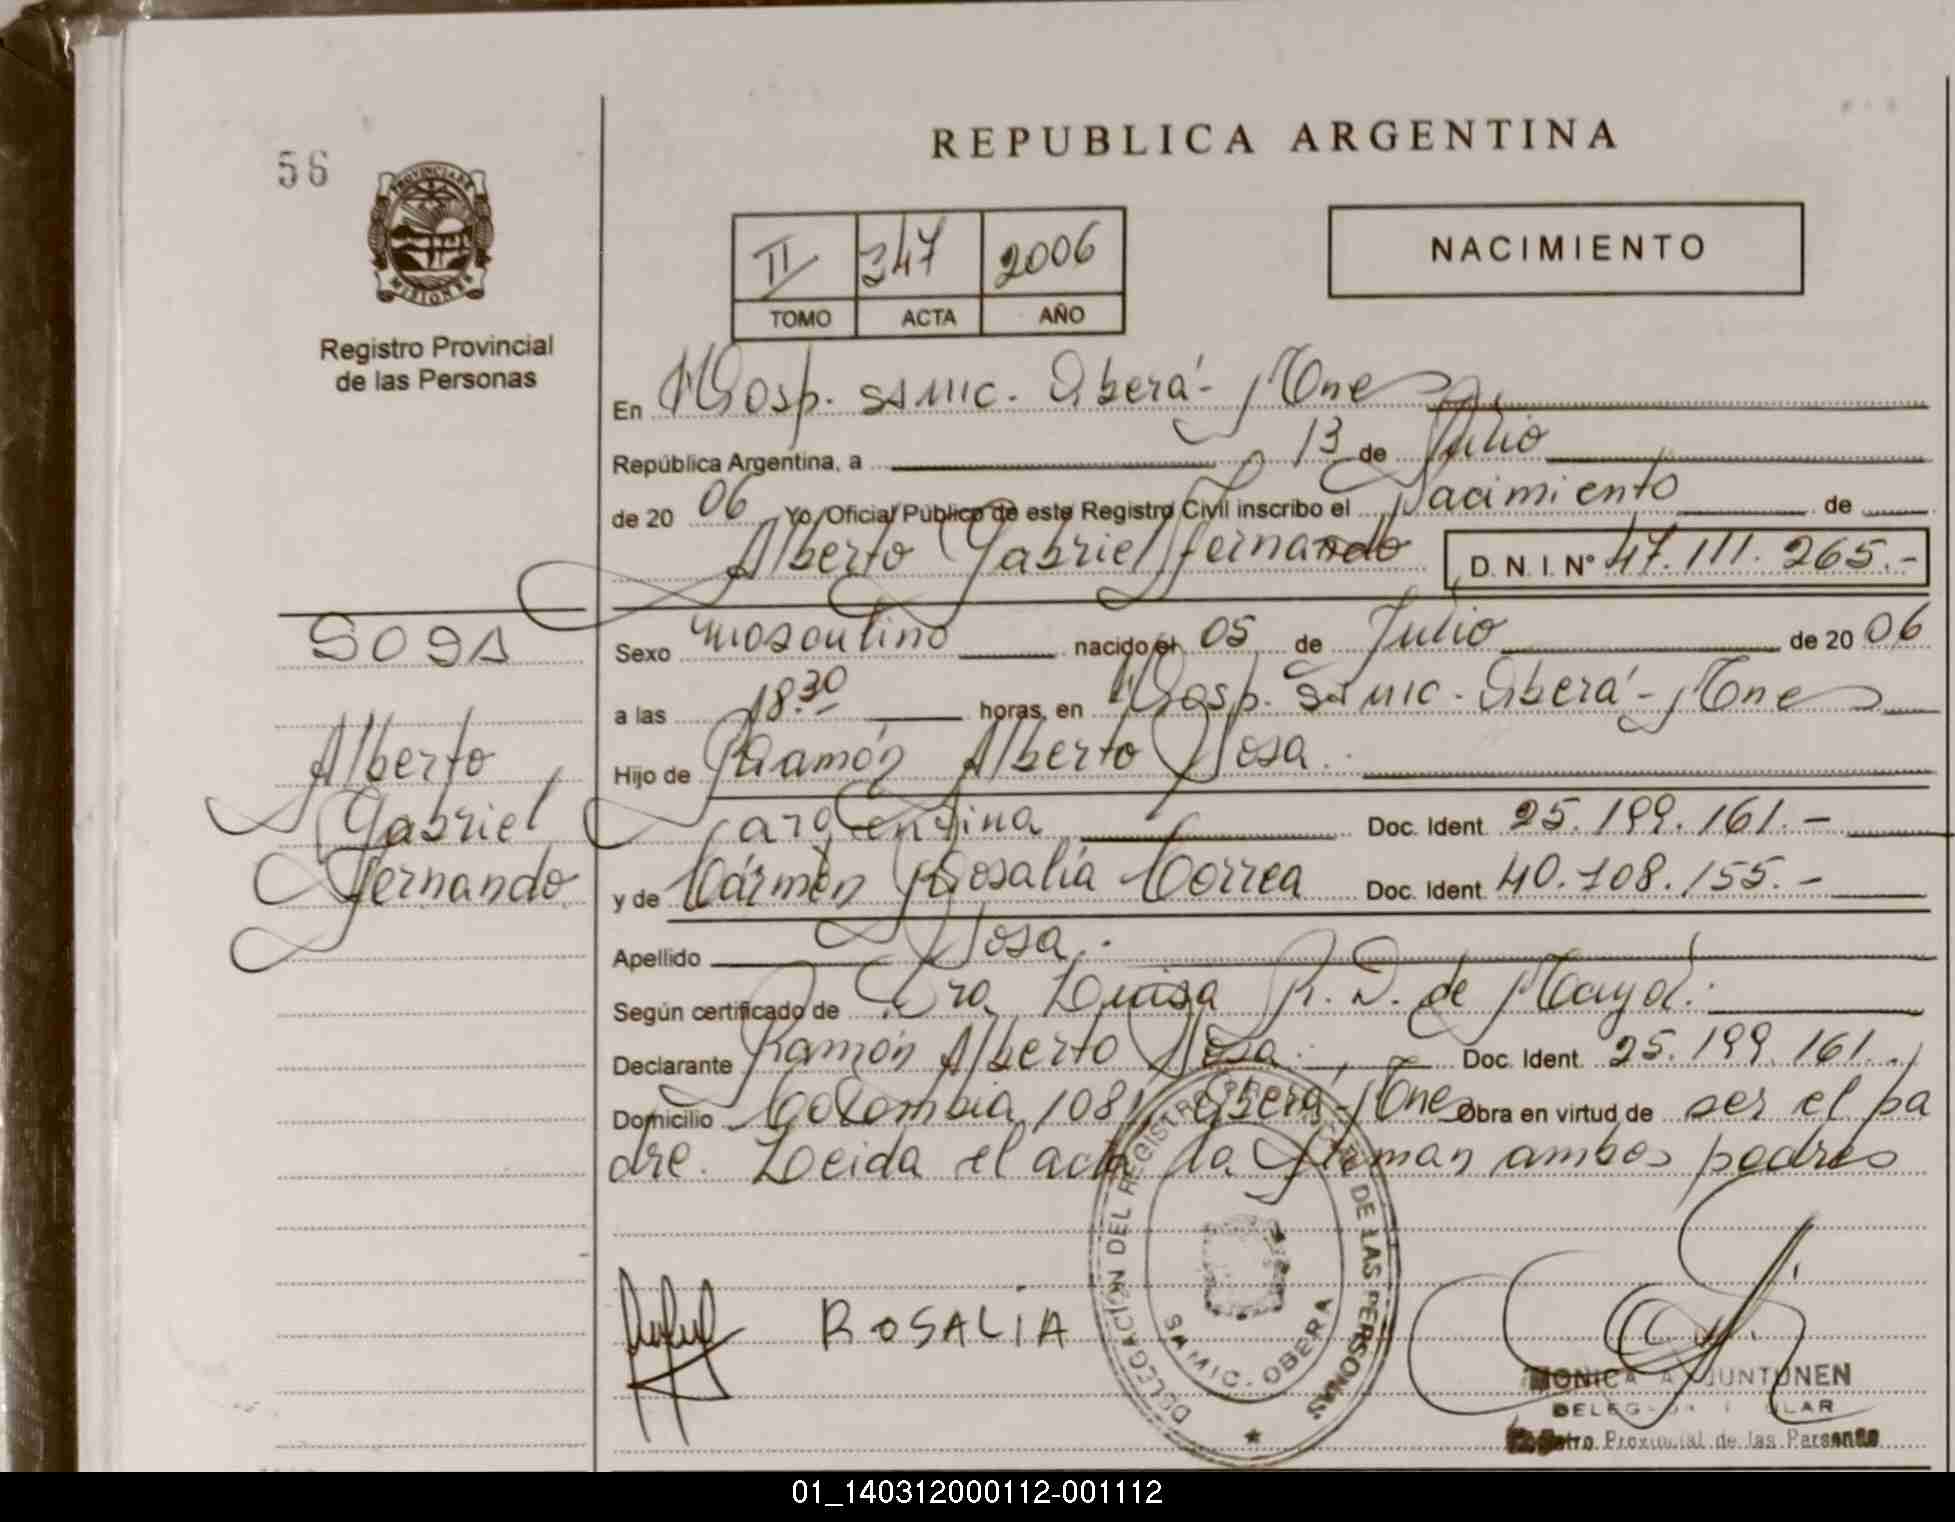 56
PROVINCIA DE
MISIONES
Registro Provincial
de las Personas
REPUBLICA ARGENTINA
II 347 2006
TOMO ACTA AÑO
NACIMIENTO
En Hosp. SAMIC. Oberá - Mnes
República Argentina, a 13 de Julio
de 20 06 Yo, Oficial Público de este Registro Civil inscribo el Nacimiento de
Alberto Gabriel Fernando D. N. I. Nº 47.111.265.-
SOSA
Alberto
Gabriel
Fernando
Sexo masculino nacido el 05 de Julio de 20 06
a las 18.30 horas, en Hosp. SAMIC - Oberá - Mnes
Hijo de Ramón Alberto Sosa.
argentina Doc. Ident. 25.199.161.-
y de Cármen Rosalía Correa Doc. Ident. 40.108.155.-
Apellido Sosa.
Según certificado de Dra Luisa R. D. de Mayol.
Declarante Ramón Alberto Sosa. Doc. Ident. 25.199.161.
Domicilio Colombia 1081, Oberá - Mnes Obra en virtud de ser el pa
dre. Leida el acta la firman ambos padres
ROSALÍA
DELEGACIÓN DEL REGISTRO DE LAS PERSONAS
SAMIC - OBERA
MONICA A JUNTUNEN
Registro Provincial de las Personas
01_140312000112-001112